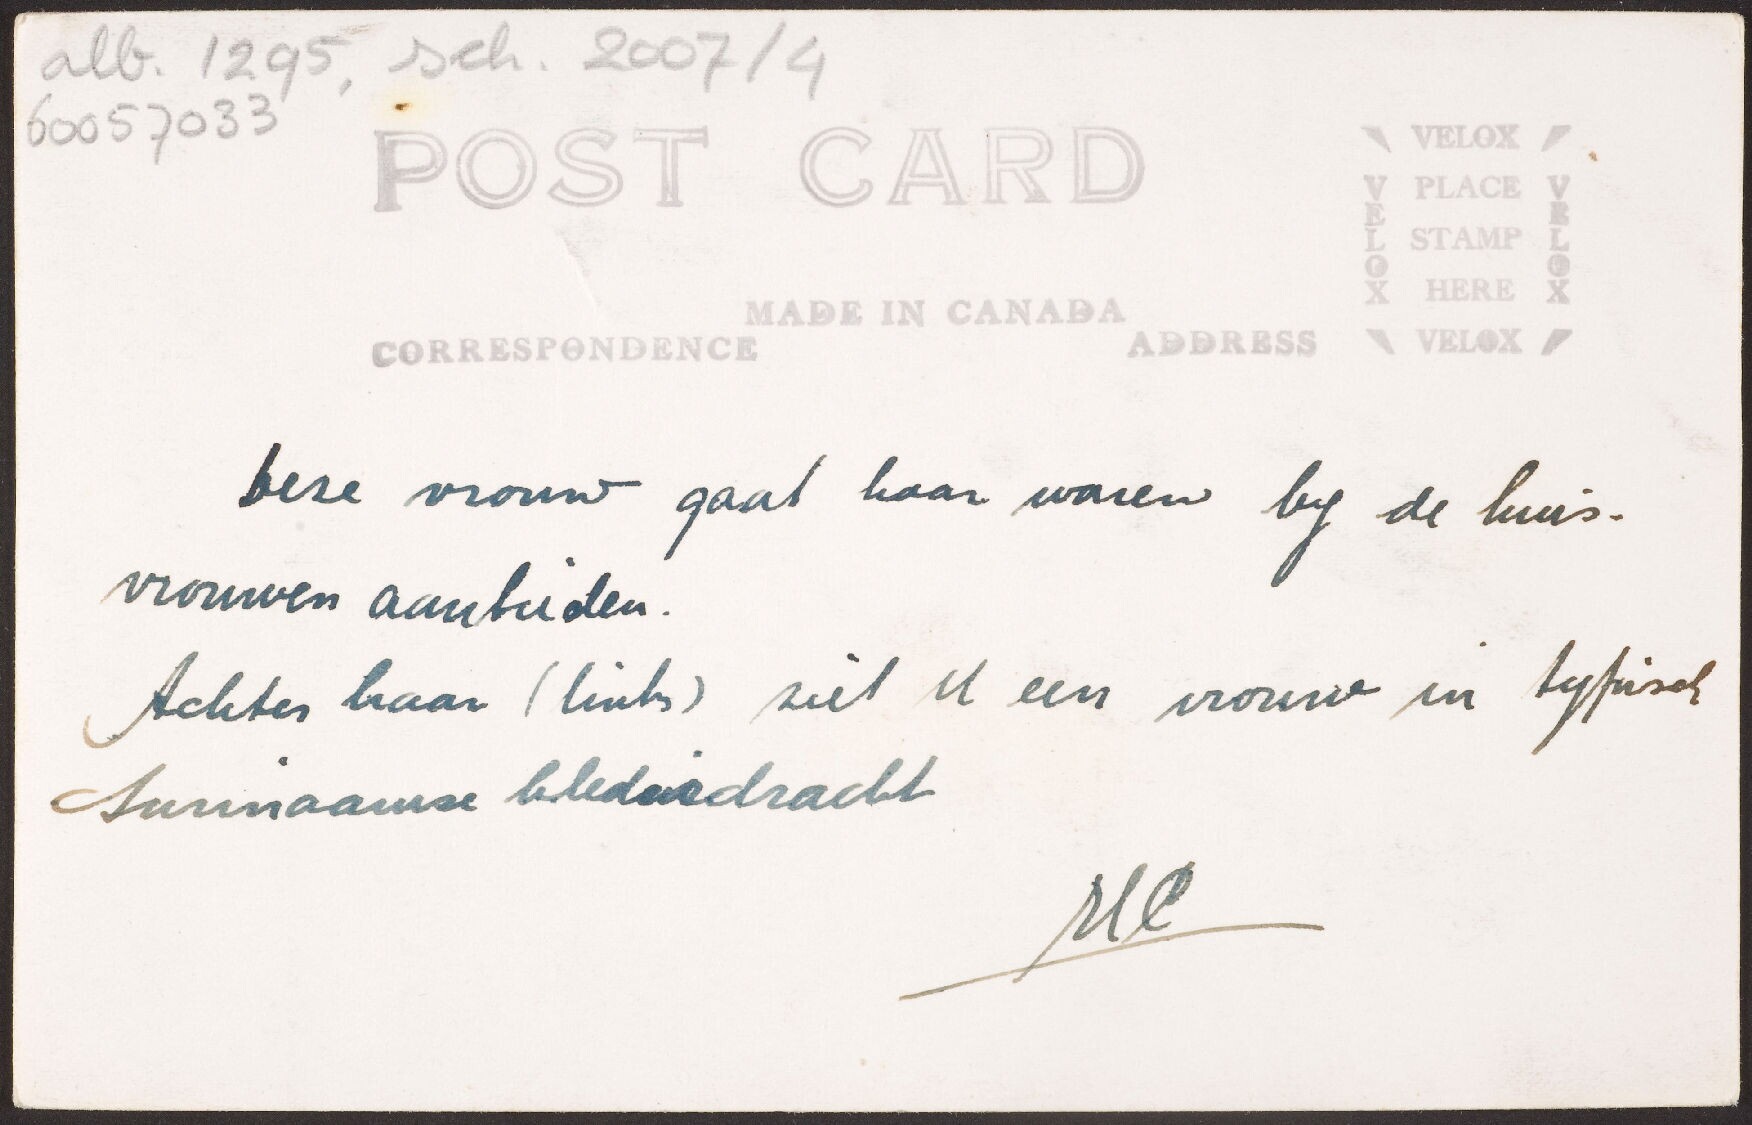 alb. 1295, sch. 2007/4
60057033
POST CARD
VELOX
PLACE
STAMP
HERE
VELOX
VELOX
VELOX
MADE IN CANADA
CORRESPONDENCE
ADDRESS
Deze vrouw gaat haar waren bij de huis-
vrouwen aanbieden.
Achter haar (links) ziet U een vrouw in typisch
Surinaamse klederdracht